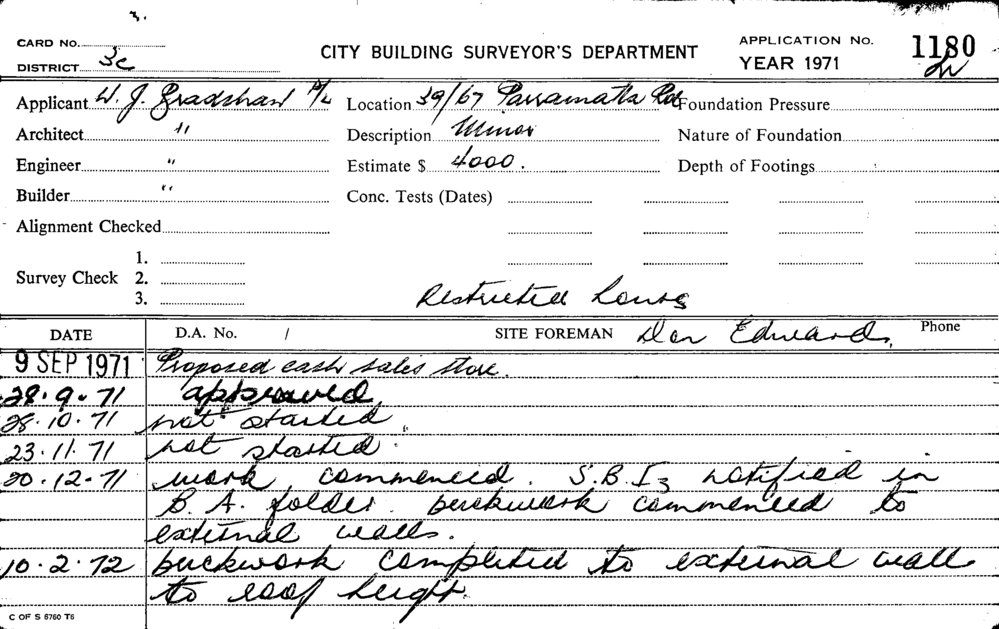 CARD NO.
DISTRICT 3c
CITY BUILDING SURVEYOR'S DEPARTMENT
APPLICATION No. 1180
YEAR 1971
Applicant W. J. Bradshaw P/L Location 39/67 Parramatta Rd Foundation Pressure
Architect " Description Minor Nature of Foundation
Engineer " Estimate $ 4000. Depth of Footings
Builder " Conc. Tests (Dates)
Alignment Checked
Survey Check 1.
2.
3.
Restricted hours
DATE D.A. No. / SITE FOREMAN Don Edwards, Phone
9 SEP 1971 Proposed cash sales store.
28.9.71 approved
28.10.71 not started.
23.11.71 not started.
20.12.71 work commenced. S.B.I3 notified in
B.A. folder. brickwork commenced to
external walls.
10.2.72 brickwork completed to external wall
to roof height.
C OF S 6760 T6